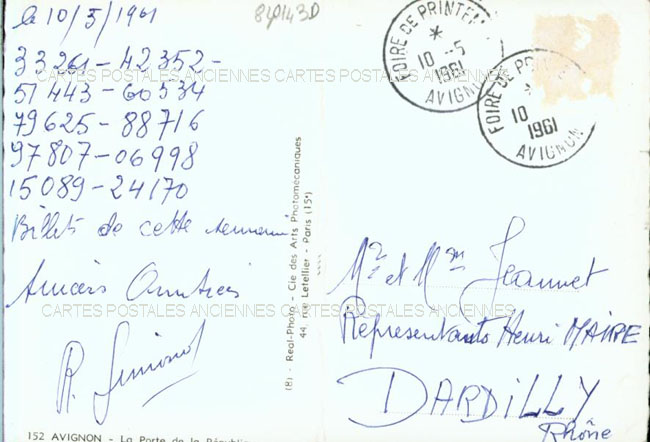 le 10/5/1961
84143D
33261-42352-
51443-60534
79625-88716
97807-06998
15089-24170
Billets de cette semaine
Amitiés
CARTES POSTALES ANCIENNES CARTES POSTALES ANCIENNES CARTES POSTALES ANCIENNES
CARTES POSTALES ANCIENNES
CARTES POSTALES ANCIENNES
CARTES POSTALES ANCIENNES
R. Simonot
152 AVIGNON - La Porte de la Républi
(8) - Real-Photo - Cie des Arts Photomécaniques
44, rue Letellier - Paris (15e)
FOIRE DE PRINTEM
10 -5
1961
AVIGNON
FOIRE DE PRIN
10
1961
AVIGNON
Mr et Mme Jeannet
Representants Henri MAIRE
DARDILLY
Rhône